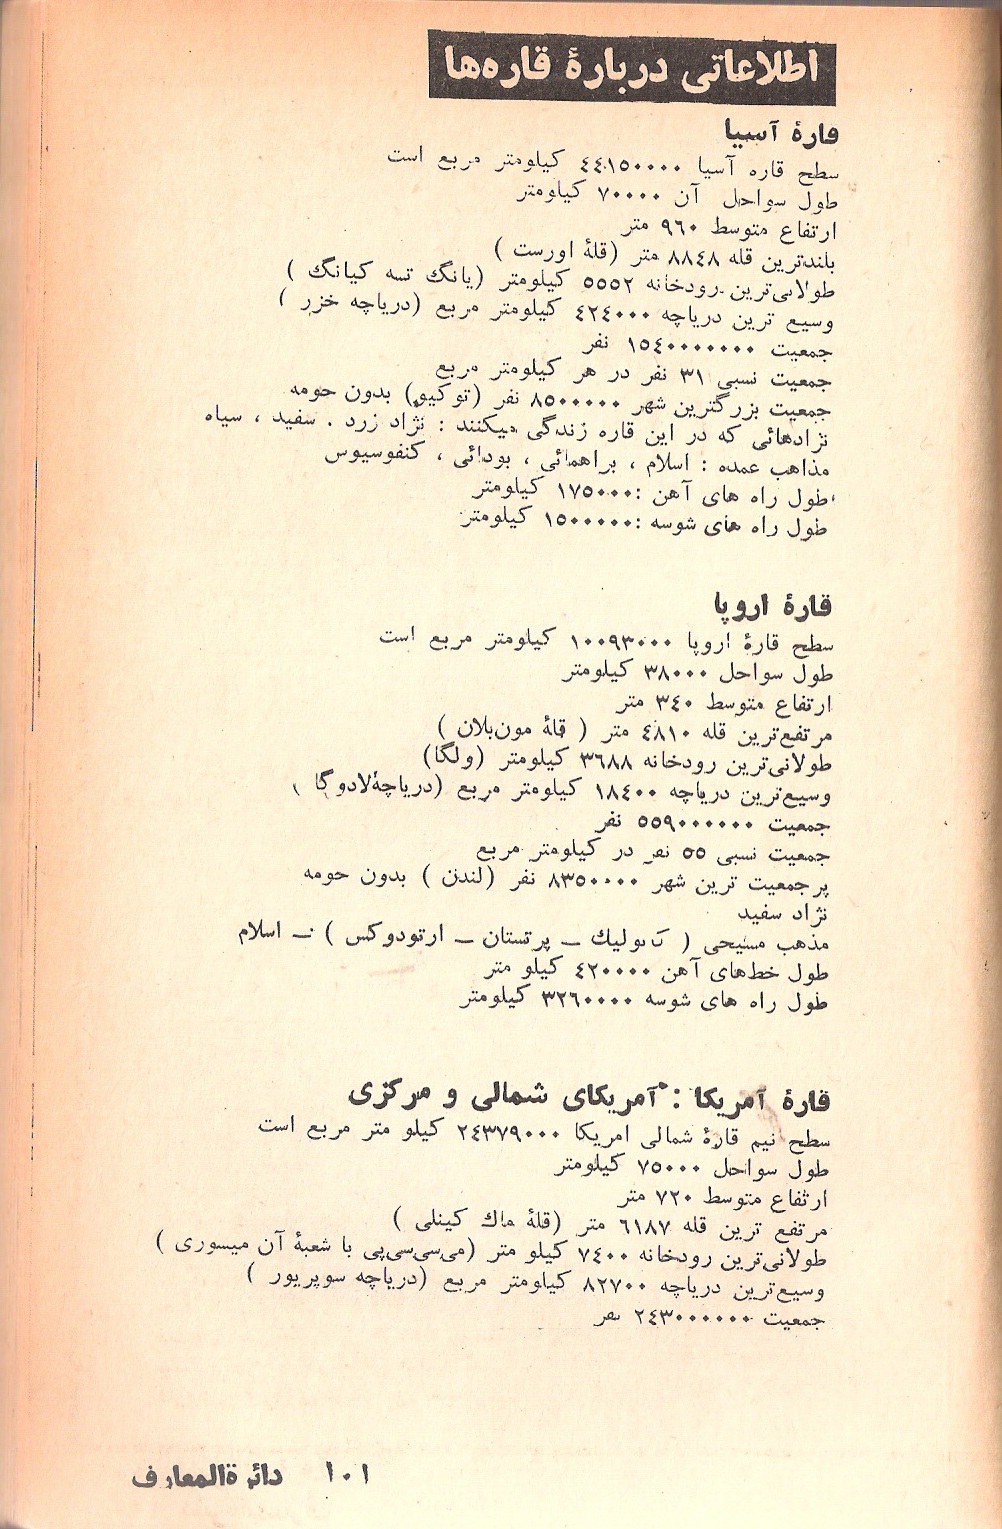 اطلاعاتی دربارهٔ قاره‌ها
قارهٔ آسیا
سطح قاره آسیا ٤٤١٥٠٠٠٠ کیلومتر مربع است
طول سواحل آن ٧٠٠٠٠ کیلومتر
ارتفاع متوسط ٩٦٠ متر
بلندترین قله ٨٨٤٨ متر (قلهٔ اورست )
طولانی‌ترین رودخانه ٥٥٥٢ کیلومتر (یانگ تسه کیانگ )
وسیع ترین دریاچه ٤٢٤٠٠٠ کیلومتر مربع (دریاچه خزر )
جمعیت ١٥٤٠٠٠٠٠٠٠ نفر
جمعیت نسبی ٣١ نفر در هر کیلومتر مربع
جمعیت بزرگترین شهر ٨٥٠٠٠٠٠ نفر (توکیو) بدون حومه
نژادهائی که در این قاره زندگی میکنند : نژاد زرد . سفید ، سیاه
مذاهب عمده : اسلام ، براهمائی ، بودائی ، کنفوسیوس
طول راه های آهن :١٧٥٠٠٠ کیلومتر
طول راه های شوسه :١٥٠٠٠٠٠ کیلومتر
قارهٔ اروپا
سطح قارهٔ اروپا ١٠٠٩٣٠٠٠ کیلومتر مربع است
طول سواحل ٣٨٠٠٠ کیلومتر
ارتفاع متوسط ٣٤٠ متر
مرتفع‌ترین قله ٤٨١٠ متر ( قلهٔ مون‌بلان )
طولانی‌ترین رودخانه ٣٦٨٨ کیلومتر (ولگا)
وسیع‌ترین دریاچه ١٨٤٠٠ کیلومتر مربع (دریاچهٔ لادوگا )
جمعیت ٥٥٩٠٠٠٠٠٠ نفر
جمعیت نسبی ٥٥ نفر در کیلومتر مربع
پرجمعیت ترین شهر ٨٣٥٠٠٠٠ نفر (لندن ) بدون حومه
نژاد سفید
مذهب مسیحی ( کاتولیك – پرتستان – ارتودوکس ) – اسلام
طول خط‌های آهن ٤٢٠٠٠٠ کیلو متر
طول راه های شوسه ٣٢٦٠٠٠٠ کیلومتر
قارهٔ آمریکا : آمریکای شمالی و مرکزی
سطح نیم قارهٔ شمالی امریکا ٢٤٣٧٩٠٠٠ کیلو متر مربع است
طول سواحل ٧٥٠٠٠ کیلومتر
ارتفاع متوسط ٧٢٠ متر
مرتفع ترین قله ٦١٨٧ متر (قلهٔ ماك کینلی )
طولانی‌ترین رودخانه ٧٤٠٠ کیلو متر (می‌سی‌سی‌پی با شعبهٔ آن میسوری )
وسیع‌ترین دریاچه ٨٢٧٠٠ کیلومتر مربع (دریاچه سوپریور )
جمعیت ٢٤٣٠٠٠٠٠٠ نفر
١٠١ دائرةالمعارف